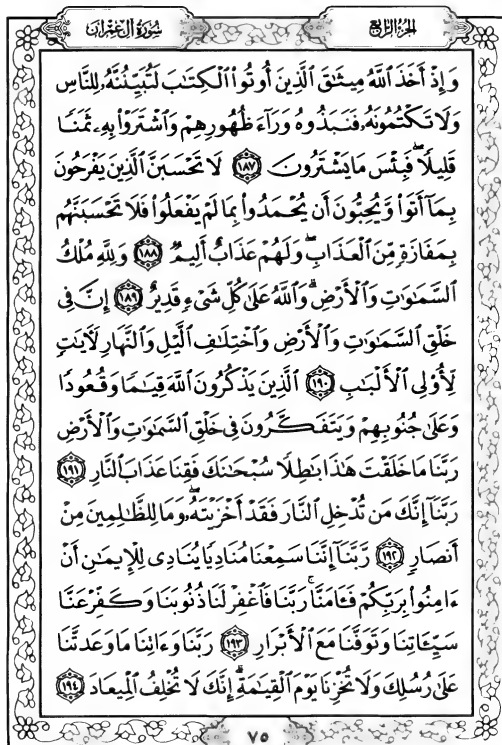 سُورَةُ آلِ عِمْرَانَ
الجُزْءُ الرَّابِعُ
وَإِذْ أَخَذَ ٱللَّهُ مِيثَٰقَ ٱلَّذِينَ أُوتُوا۟ ٱلْكِتَٰبَ لَتُبَيِّنُنَّهُۥ لِلنَّاسِ
وَلَا تَكْتُمُونَهُۥ فَنَبَذُوهُ وَرَآءَ ظُهُورِهِمْ وَٱشْتَرَوْا۟ بِهِۦ ثَمَنًا
قَلِيلًا ۖ فَبِئْسَ مَا يَشْتَرُونَ ﴿١٨٧﴾ لَا تَحْسَبَنَّ ٱلَّذِينَ يَفْرَحُونَ
بِمَآ أَتَوا۟ وَّيُحِبُّونَ أَن يُحْمَدُوا۟ بِمَا لَمْ يَفْعَلُوا۟ فَلَا تَحْسَبَنَّهُم
بِمَفَازَةٍ مِّنَ ٱلْعَذَابِ ۖ وَلَهُمْ عَذَابٌ أَلِيمٌ ﴿١٨٨﴾ وَلِلَّهِ مُلْكُ
ٱلسَّمَٰوَٰتِ وَٱلْأَرْضِ ۗ وَٱللَّهُ عَلَىٰ كُلِّ شَىْءٍ قَدِيرٌ ﴿١٨٩﴾ إِنَّ فِى
خَلْقِ ٱلسَّمَٰوَٰتِ وَٱلْأَرْضِ وَٱخْتِلَٰفِ ٱلَّيْلِ وَٱلنَّهَارِ لَءَايَٰتٍ
لِّأُو۟لِى ٱلْأَلْبَٰبِ ﴿١٩٠﴾ ٱلَّذِينَ يَذْكُرُونَ ٱللَّهَ قِيَٰمًا وَقُعُودًا
وَعَلَىٰ جُنُوبِهِمْ وَيَتَفَكَّرُونَ فِى خَلْقِ ٱلسَّمَٰوَٰتِ وَٱلْأَرْضِ
رَبَّنَا مَا خَلَقْتَ هَٰذَا بَٰطِلًا سُبْحَٰنَكَ فَقِنَا عَذَابَ ٱلنَّارِ ﴿١٩١﴾
رَبَّنَآ إِنَّكَ مَن تُدْخِلِ ٱلنَّارَ فَقَدْ أَخْزَيْتَهُۥ ۖ وَمَا لِلظَّٰلِمِينَ مِنْ
أَنصَارٍ ﴿١٩٢﴾ رَّبَّنَآ إِنَّنَا سَمِعْنَا مُنَادِيًا يُنَادِى لِلْإِيمَٰنِ أَنْ
ءَامِنُوا۟ بِرَبِّكُمْ فَـَٔامَنَّا ۚ رَبَّنَا فَٱغْفِرْ لَنَا ذُنُوبَنَا وَكَفِّرْ عَنَّا
سَيِّـَٔاتِنَا وَتَوَفَّنَا مَعَ ٱلْأَبْرَارِ ﴿١٩٣﴾ رَبَّنَا وَءَاتِنَا مَا وَعَدتَّنَا
عَلَىٰ رُسُلِكَ وَلَا تُخْزِنَا يَوْمَ ٱلْقِيَٰمَةِ ۗ إِنَّكَ لَا تُخْلِفُ ٱلْمِيعَادَ ﴿١٩٤﴾
٧٥